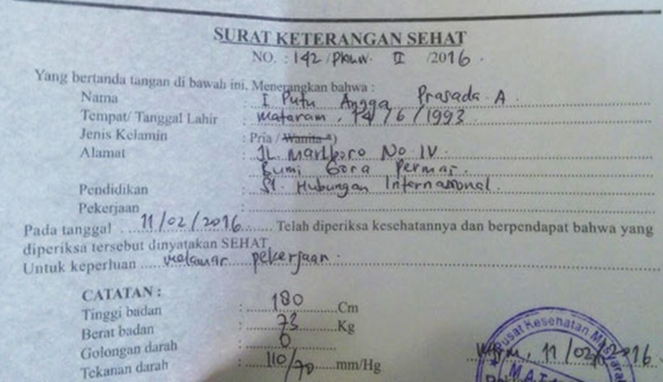 SURAT KETERANGAN SEHAT
NO. : 142 / PKM.W. II /2016.
Yang bertanda tangan di bawah ini, Menerangkan bahwa :
Nama : I Putu Angga Prasada A.
Tempat/ Tanggal Lahir : Mataram, 14/6/1993
Jenis Kelamin : Pria / Wanita *)
Alamat : JL. Marlboro No IV.
Bumi Gora Permai.
Pendidikan : S1. Hubungan Internasional.
Pekerjaan :
Pada tanggal 11/02/2016 Telah diperiksa kesehatannya dan berpendapat bahwa yang
diperiksa tersebut dinyatakan SEHAT.
Untuk keperluan melamar pekerjaan.
CATATAN :
Tinggi badan : 180 Cm
Berat badan : 73 Kg
Golongan darah : O
Tekanan darah : 110/70 mm/Hg
Pusat Kesehatan Masyarakat
Mtrm, 11/02/2016